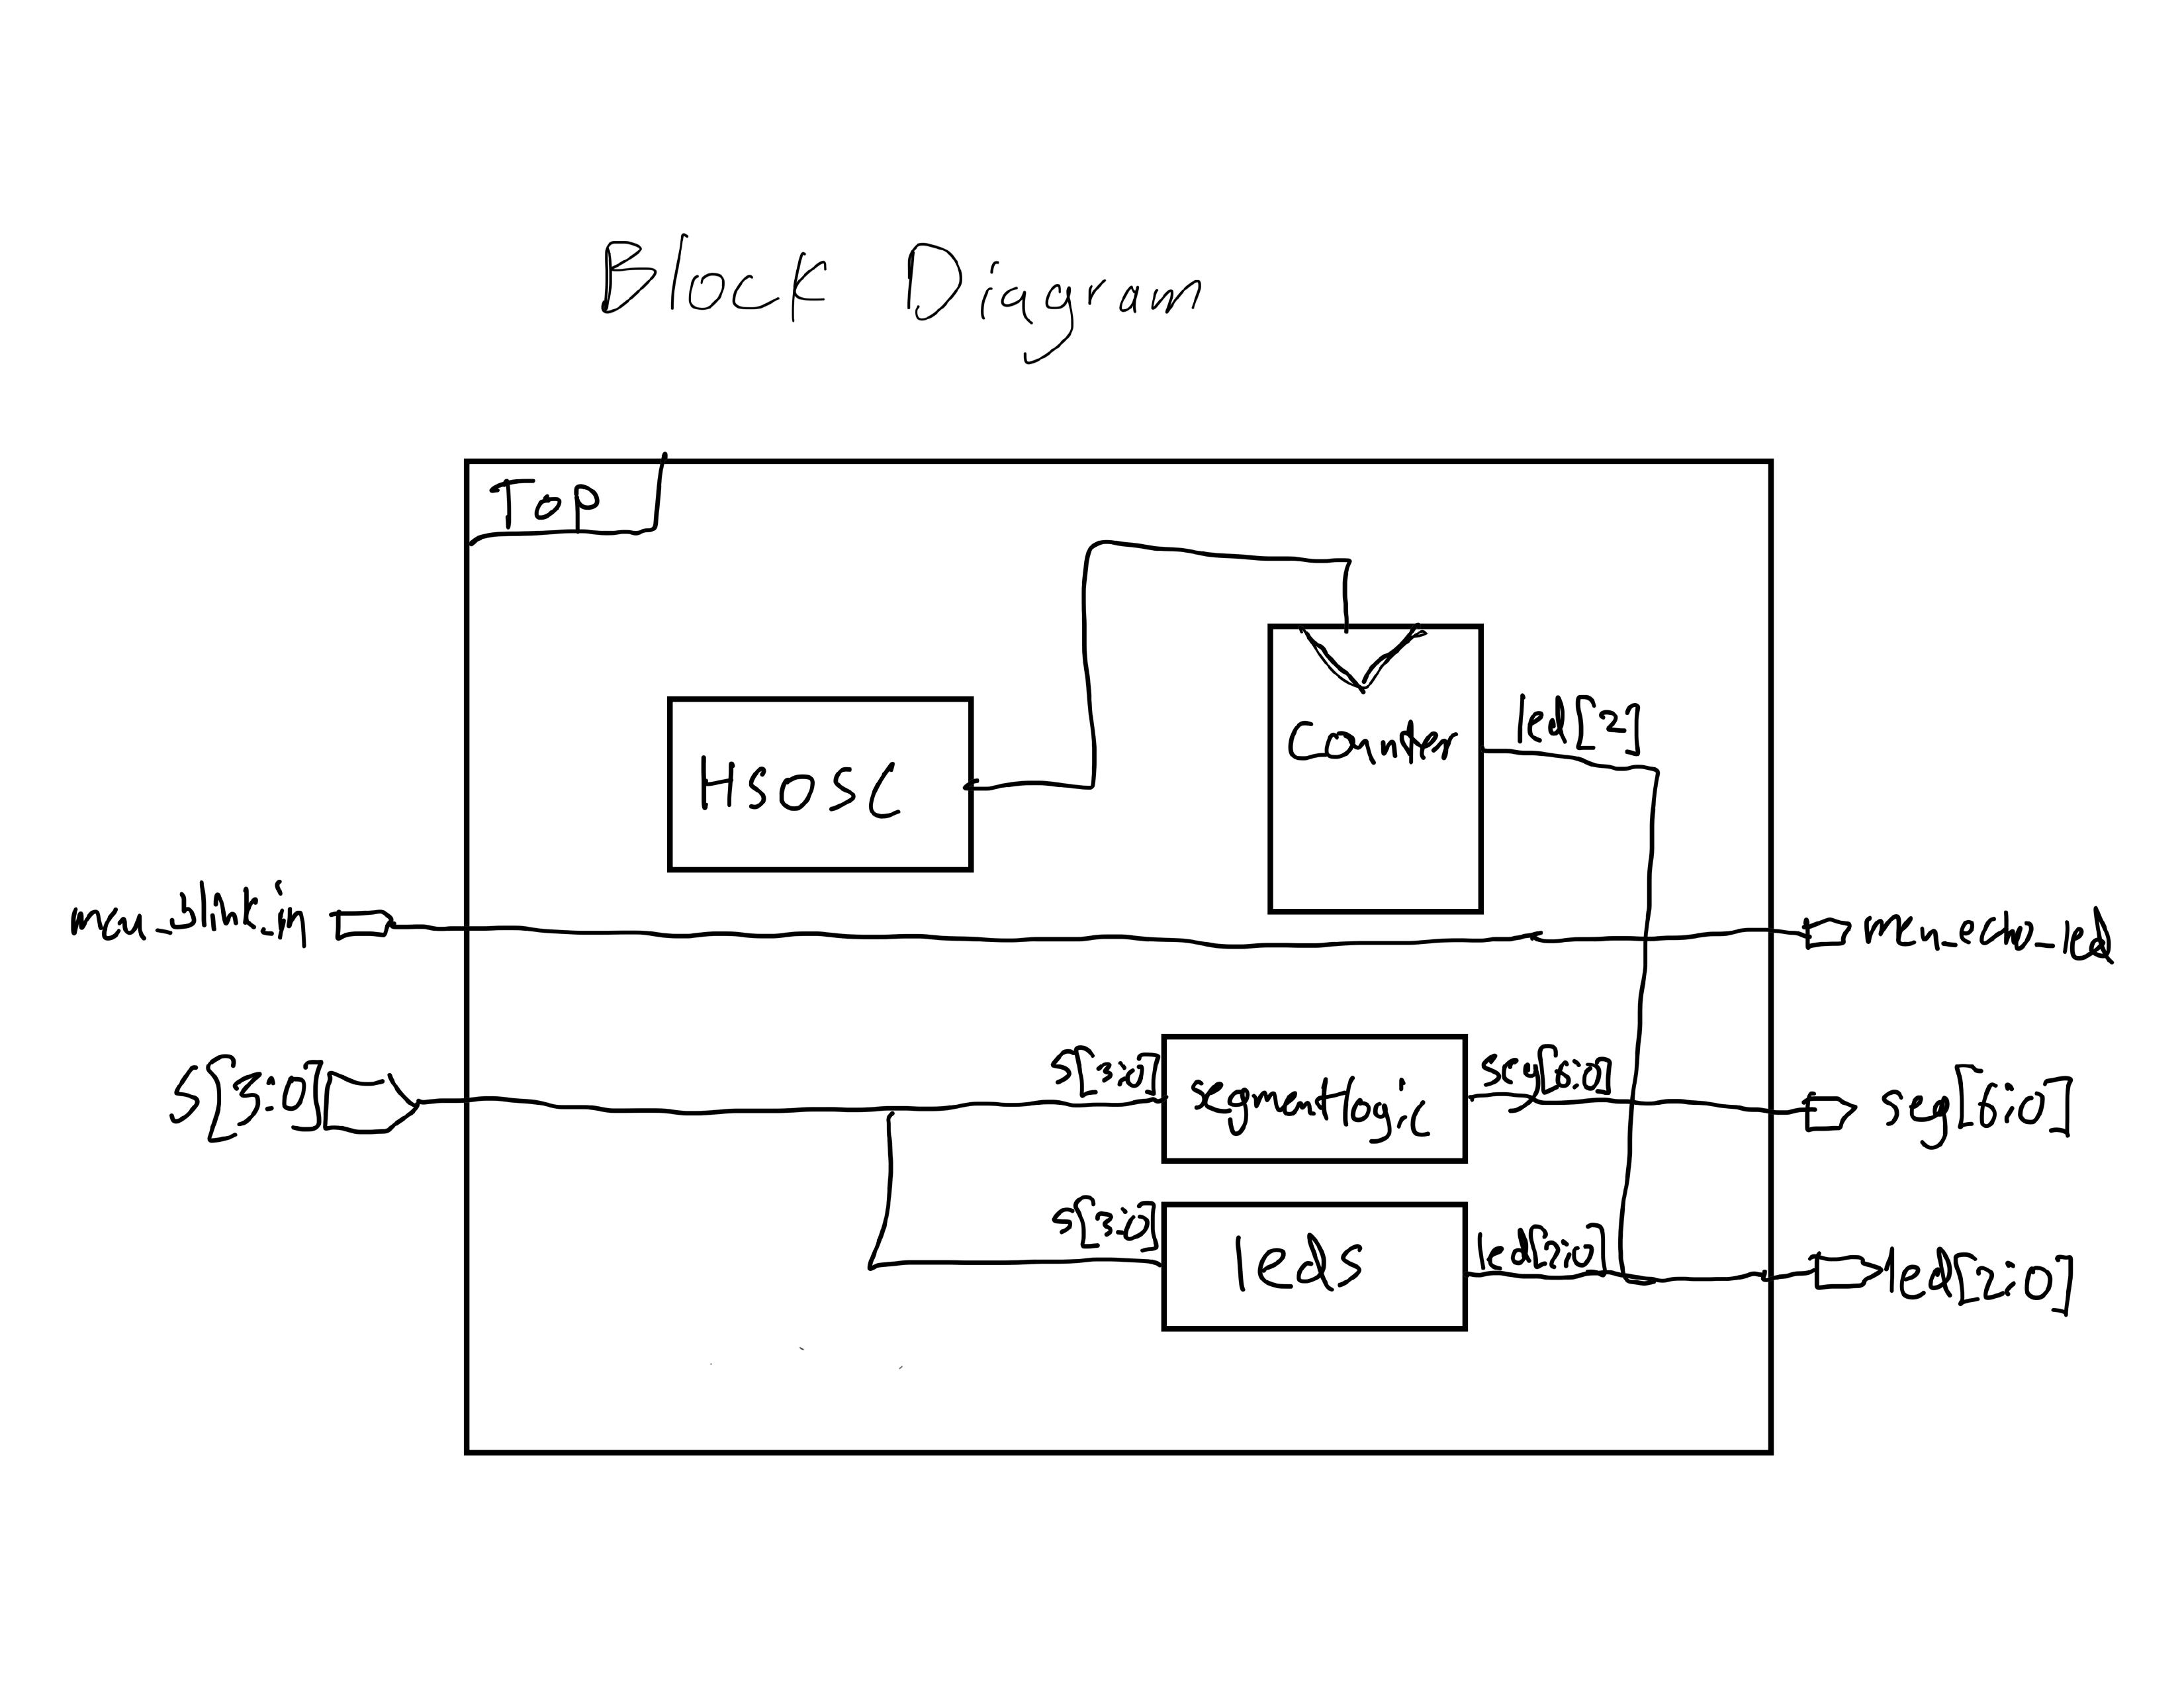 Block Diagram
Top
HSOSC
Counter
led[2]
mcu_blink_in
mcu_echo_led
s[3:0]
s[3:0]
segmentlogic
seg[6:0]
seg[6:0]
s[3:0]
leds
led[2:0]